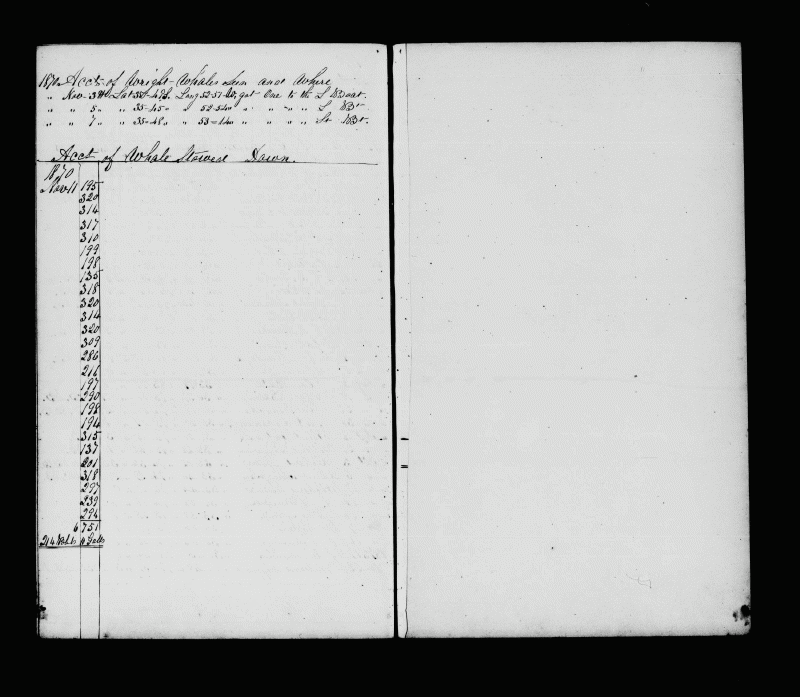 1870 Acct of Wright-Whales Seen and Where
" Nov 3rd Lat 35- Long 52-57 W, got One to the S W Boat.
" " 5 " 35-45 " " 52-54 " " " " S WBt
" " 7 " 35-48 " " 53-14 " " " " St WBt.
Acct of Whale Stowed Down.
1870
Nov 11 195
320
314
317
310
199
198
135
318
320
314
320
309
286
216
197
290
198
194
315
137
201
318
297
239
294
6751
214 Bbls 10 Galls